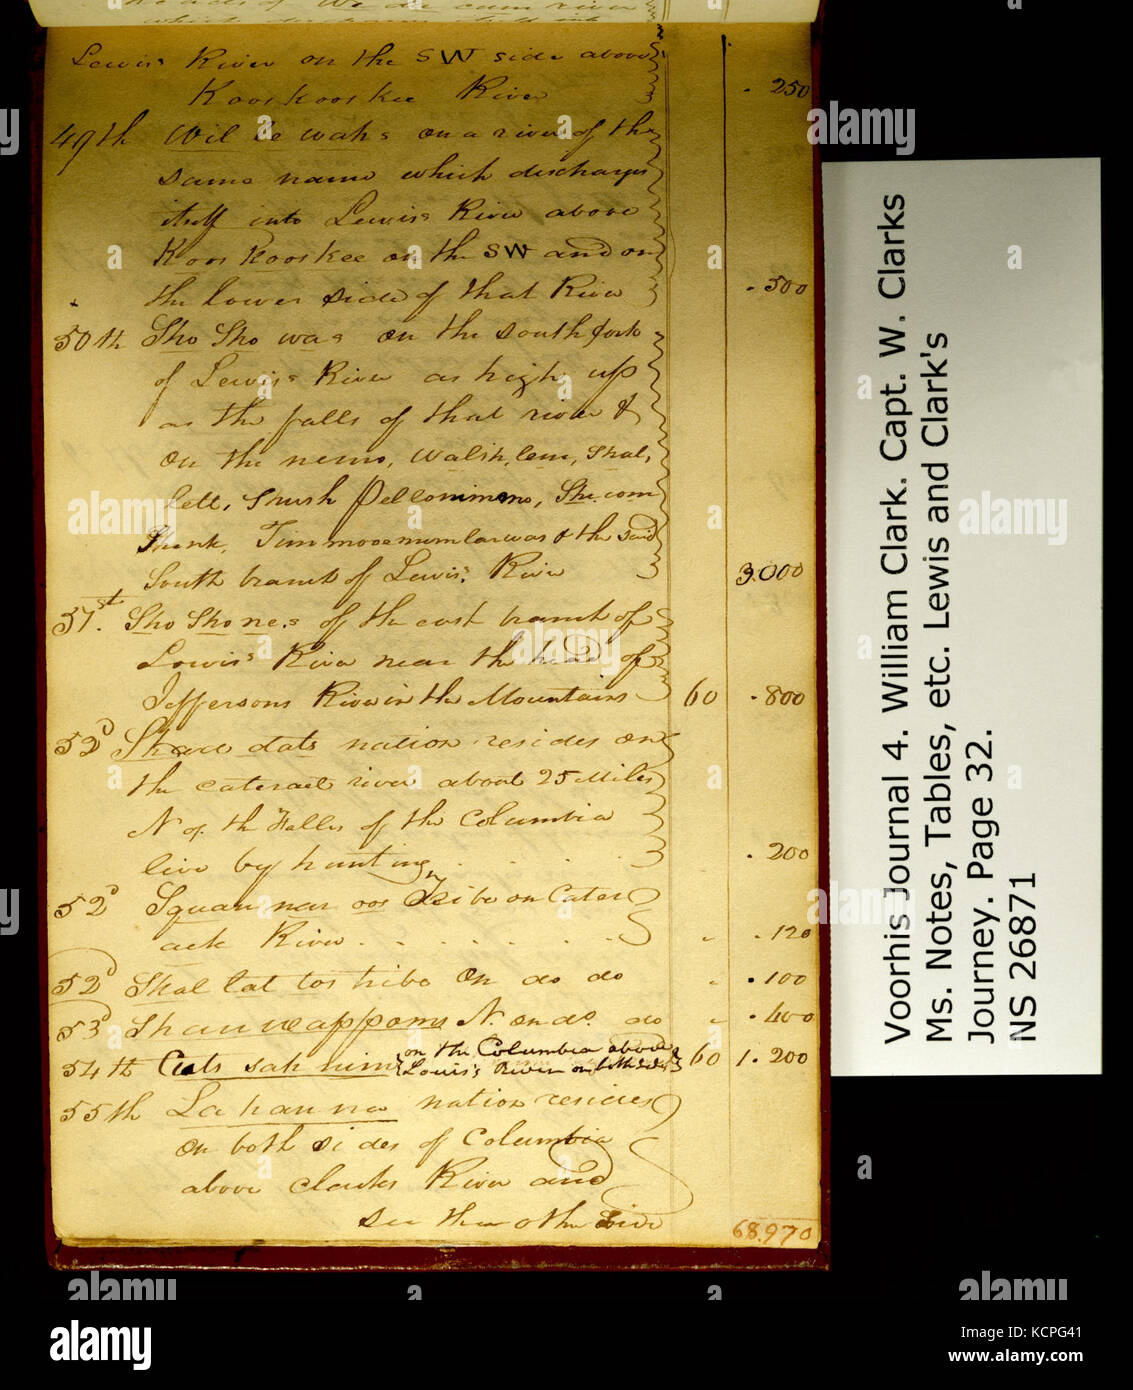 Lewis's River on the SW side above
KoosKooskee River . 250
49th Wil le wahs on a river of the
same name which discharges
itself into Lewis's River above
Koos Kooskee on the SW and on
the lower side of that River . 500
50th Sho Sho was on the south fork
of Lewis's River as high up
as the falls of that river &
on the nemo, Walsh, lem, Shal,
lett, Shush pellonimmo, She.com
Shenk, Timmooenumlarwas & the said
South branch of Lewis's River 3.000
51st. Sho Sho ne.s of the east branch of
Lewis's River near the head of
Jeffersons River in the Mountains 60 . 800
52d nation resides on
the cataract river about 25 Miles
N of the Falls of the Columbia
live by hunting . . . . . 200
52d Squan nar oos tribe on Cater
ack River . . . . . . . 120
52d Shal lat tos tribe on do do . 100
53d Shan we appoms N. on do. do . 400
54th Cuts sah nim { on the Columbia above
Lewis's River on both sides } 60 1.200
55th La han na nation resides
on both sides of Columbia
above Clarks River and
see the other side 68.970
Voorhis Journal 4. William Clark. Capt. W. Clarks
Ms. Notes, Tables, etc. Lewis and Clark's
Journey. Page 32.
NS 26871
alamy
Image ID: KCPG41
www.alamy.com